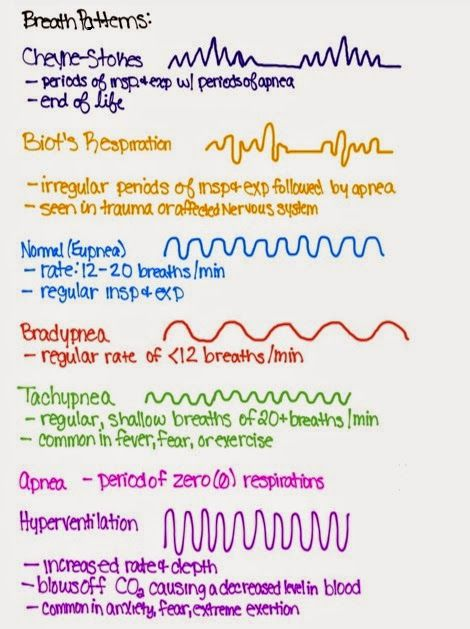 Breath Patterns:
Cheyne-Stokes
- periods of insp & exp w/ periods of apnea
- end of life
Biot's Respiration
- irregular periods of insp & exp followed by apnea
- seen in trauma or affected Nervous system
Normal (Eupnea)
- rate: 12-20 breaths/min
- regular insp & exp
Bradypnea
- regular rate of <12 breaths/min
Tachypnea
- regular, shallow breaths of 20+ breaths/min
- common in fever, fear, or exercise
Apnea - period of zero (0) respirations
Hyperventilation
- increased rate & depth
- blows off CO₂ causing a decreased level in blood
- common in anxiety, fear, extreme exertion